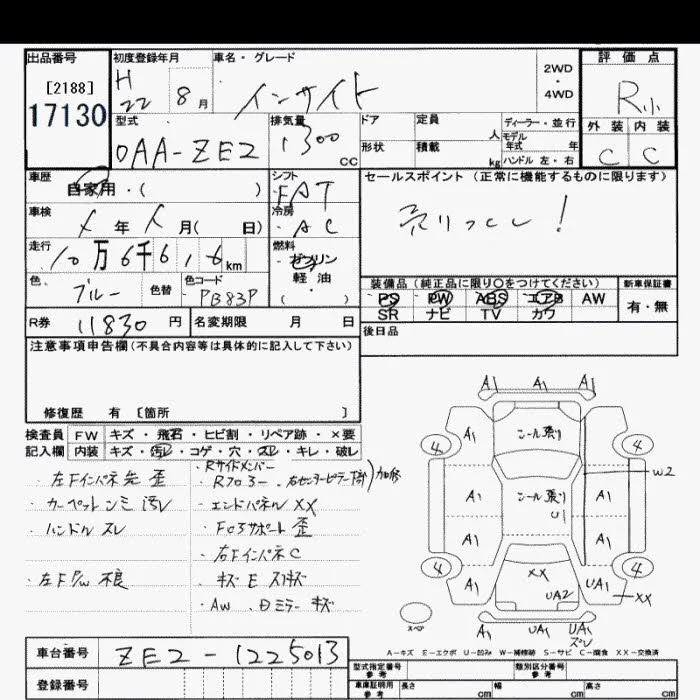 出品番号 初度登録年月 車名・グレード 評価点
[2188] H 22 8月 インサイト 2WD・4WD R小
17130
型式 排気量 ドア 定員 ディーラー・並行 外装 内装
0AA-ZE2 1300 CC 形状 積載 人 kg モデル年式 年 ハンドル 左・右 C C
車歴 シフト セールスポイント(正常に機能するものに限ります)
自家用・( ) FAT
車検 冷房 売りつくし!
年 月( 日) AC
走行 燃料
10万6千616km ガソリン
軽油
( )
色 色替 色コード 装備品(純正品に限り○をつけてください) 新車保証書
ブルー PB83P PS PW ABS エアB AW 有・無
SR ナビ TV カワ
R券 11830円 名変期限 月 日 後日品
注意事項申告欄(不具合内容等は具体的に記入して下さい)
修復歴 有 [箇所 ]
検査員 FW キズ・飛石・ヒビ割・リペア跡・×要
記入欄 内装 キズ・汚レ・コゲ・穴・スレ・キレ・破レ
・左Fインパネ先 歪 ・Rサイドメンバー
・Rフロアー、右センターピラー下部)加修
・カーペット シミ 汚レ ・エンドパネル XX
・ハンドル スレ ・Fコアサポート 歪
・右FインパネC
・左F P/w 不良 ・キズ E スリキズ
・Aw、Dミラー キズ
A1 A1 A1
4 A1 シール張り 4
W2
A1 シール張り A1
U1
A1 A1
4 XX 4
A1 UA2 UA1 XX
スペア A1 UA1 UA1
ズレ
A-キズ E-エクボ U-凹み W-補修跡 S-サビ C-腐食 XX-交換済
車台番号 ZE2-1225013 型式指定番号 参考 類別区分番号 参考
登録番号 車庫証明用 参考 長さ cm 幅 cm 高さ cm